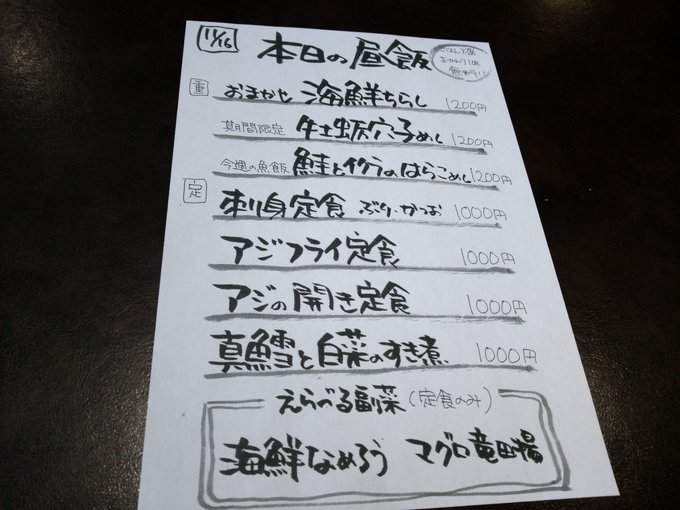 11/16
本日の昼飯
ごはん大盛
おかわり1回
無料!!
重
おまかせ 海鮮ちらし 1200円
期間限定 牡蛎穴子めし 1200円
今週の魚飯 鮭とイクラのはらこめし 1200円
定
刺身定食 ぶり・かつお 1000円
アジフライ定食 1000円
アジの開き定食 1000円
真鱈と白菜のすき煮 1000円
えらべる副菜(定食のみ)
海鮮なめろう マグロ竜田揚